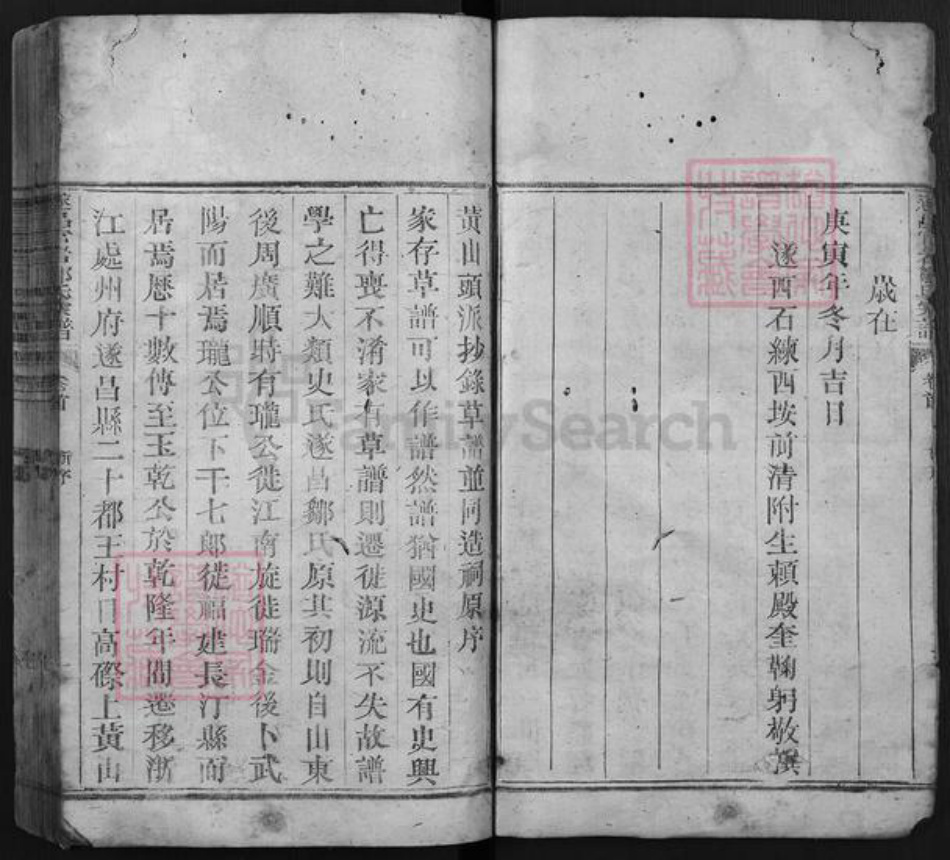 歲在
庚寅年冬月吉日
遂西石練西垵前清附生賴殿奎鞠躬敬譔
黃山頭派抄錄草譜並同造祠原序
家存草譜可以作譜然譜猶國史也國有史興
亡得喪不淆家有草譜則遷徙源流不失故譜
學之難大類史氏遂昌鄒氏原其初則自山東
後周廣順時有瓏公徙江南旋徙瑞金後卜武
陽而居焉瓏公位下千七郎徙福建長汀縣而
居焉歷十數傳至玉乾公於乾隆年間遷移浙
江處州府遂昌縣二十都王村口高際上黃山
卷首
新序
FamilySearch